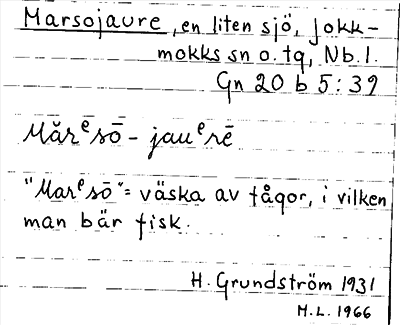 Marsojaure, en liten sjö, Jokk-
mokks sn o. tg, Nb. l.
Gn 20 b 5:39
Mărᵉsō-jauᵉrē
"Marᵉsō" = väska av tågor, i vilken
man bär fisk.
H. Grundström 1931
M.L. 1966